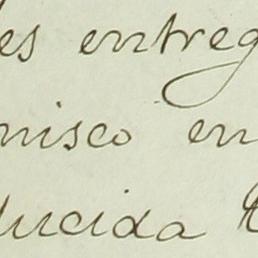 es entreg
nisco en
lucida